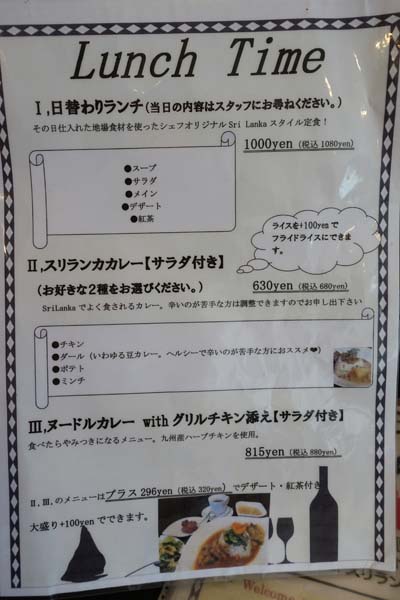 Lunch Time
Ⅰ,日替わりランチ(当日の内容はスタッフにお尋ねください。)
その日仕入れた地場食材を使ったシェフオリジナル Sri Lanka スタイル定食！
1000yen (税込 1080yen)
●スープ
●サラダ
●メイン
●デザート
●紅茶
ライスを+100yen で
フライドライスにできま
す。
Ⅱ,スリランカカレー【サラダ付き】
(お好きな2種をお選びください。)
630yen (税込 680yen)
SriLanka でよく食されるカレー。辛いのが苦手な方は調整できますのでお申し出下さい
●チキン
●ダール（いわゆる豆カレー。ヘルシーで辛いのが苦手な方におススメ❤)
●ポテト
●ミンチ
Ⅲ,ヌードルカレー with グリルチキン添え【サラダ付き】
食べたらやみつきになるメニュー。九州産ハーブチキンを使用。
815yen (税込 880yen)
Ⅱ,Ⅲ,のメニューはプラス 296yen (税込 320yen) でデザート・紅茶付き
大盛り+100yen でできます。
スリラン
Welcome